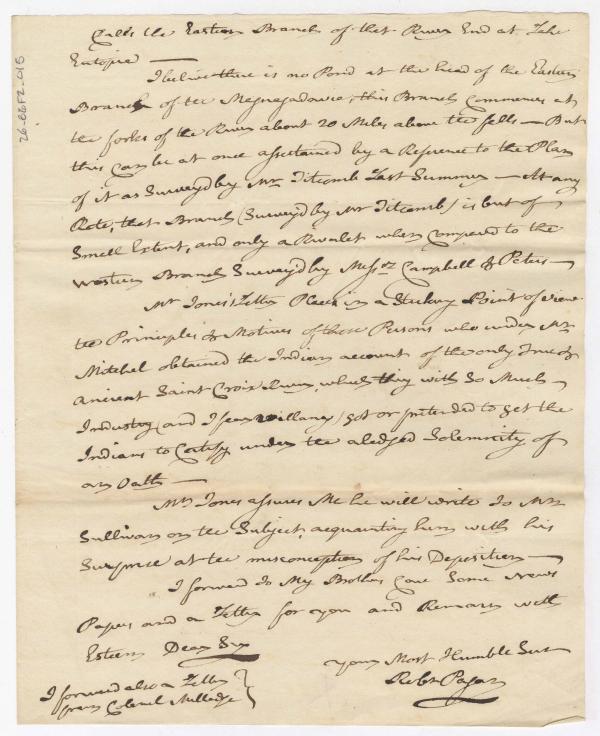 Calls the Eastern Branch of that River End at Lake
Eutopia —
I believe there is no Pond at the head of the Eastern
Branch of the Megegadavie, this Branch Commences at
the forks of the River about 20 Miles above the falls — But
this Can be at once ascertained by a Reference to the Plan
of it as Survey'd by Mr. Titcomb Last Summer — At any
Rate, that Branch (Survey'd by Mr Titcomb) is but of
Small Extent, and only a Rivulet when Compared to the
Western Branch Survey'd by Messrs Campbell & Peters —
Mr Jones's Letter Places in a Striking Point of view
the Principles & Motives of those Persons who under Mr
Mitchel obtained the Indian account of the only True &
ancient Saint Croix River, which they with So Much
Industry (and I fear villany) got or pretended to get the
Indians to Certify under the aledged Solemnity of
an Oath —
Mr. Jones assures Me he will write to Mr
Sullivan on the Subject, acquainting him with his
Surprise at the misconception of his Deposition —
I forward to My Brothers Care Some News
Papers and a Letter for you and Remain with
Esteem Dear Sir
Your Most Humble Sert
Robt Pagan
I forward also a Letter
from Colonel Milledge
26-66F2-015